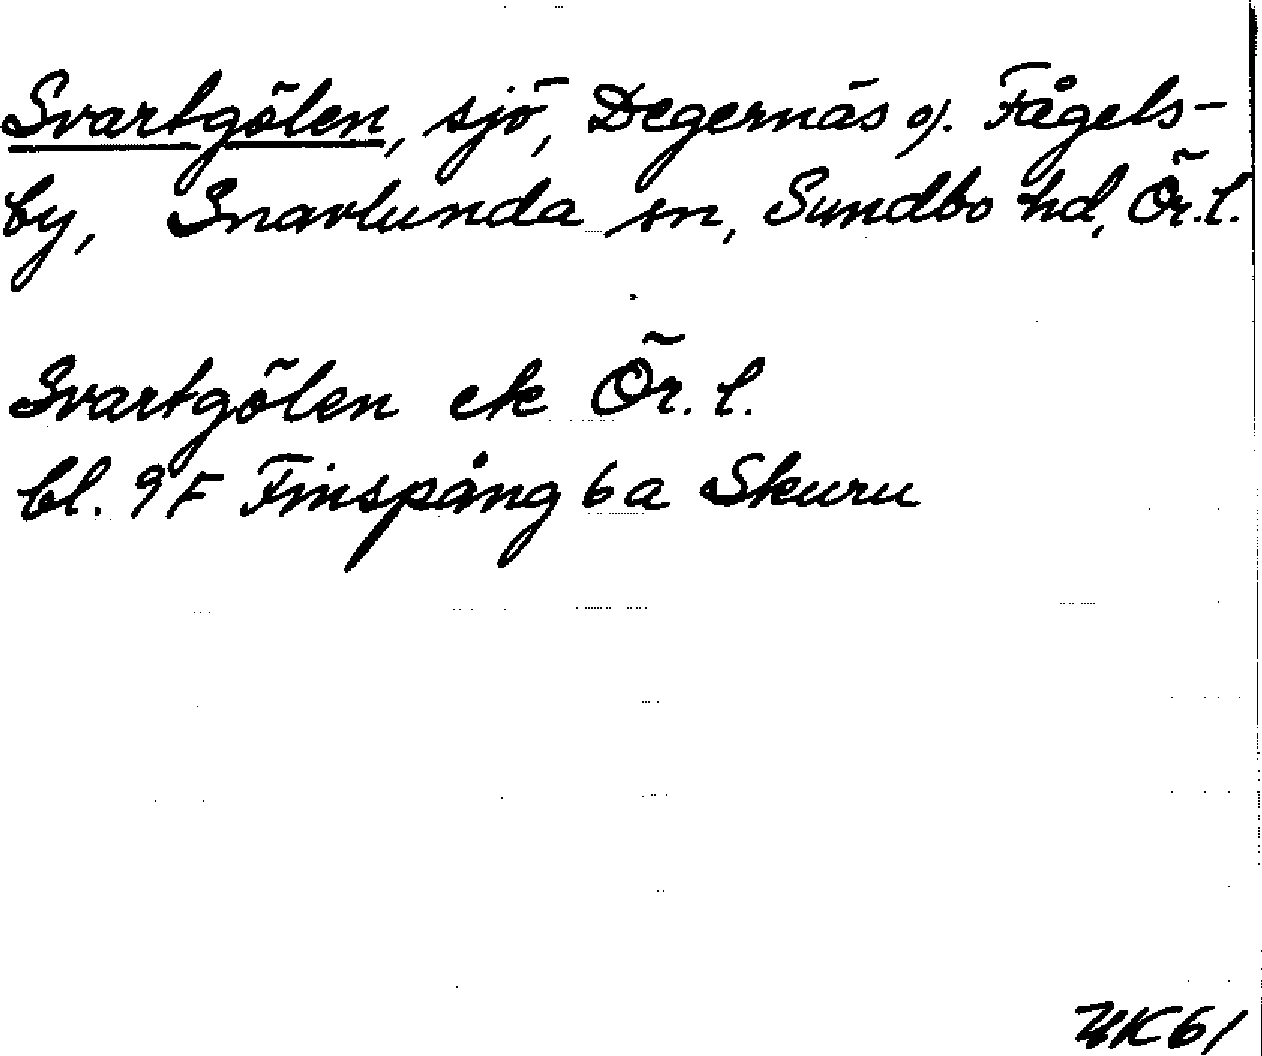 Svartgölen, sjö, Degernäs o. Fågels-
by, Snavlunda sn, Sundbo hd, Ör. l.
Svartgölen ek Ör. l.
bl. 9F Finspång 6a Skuru